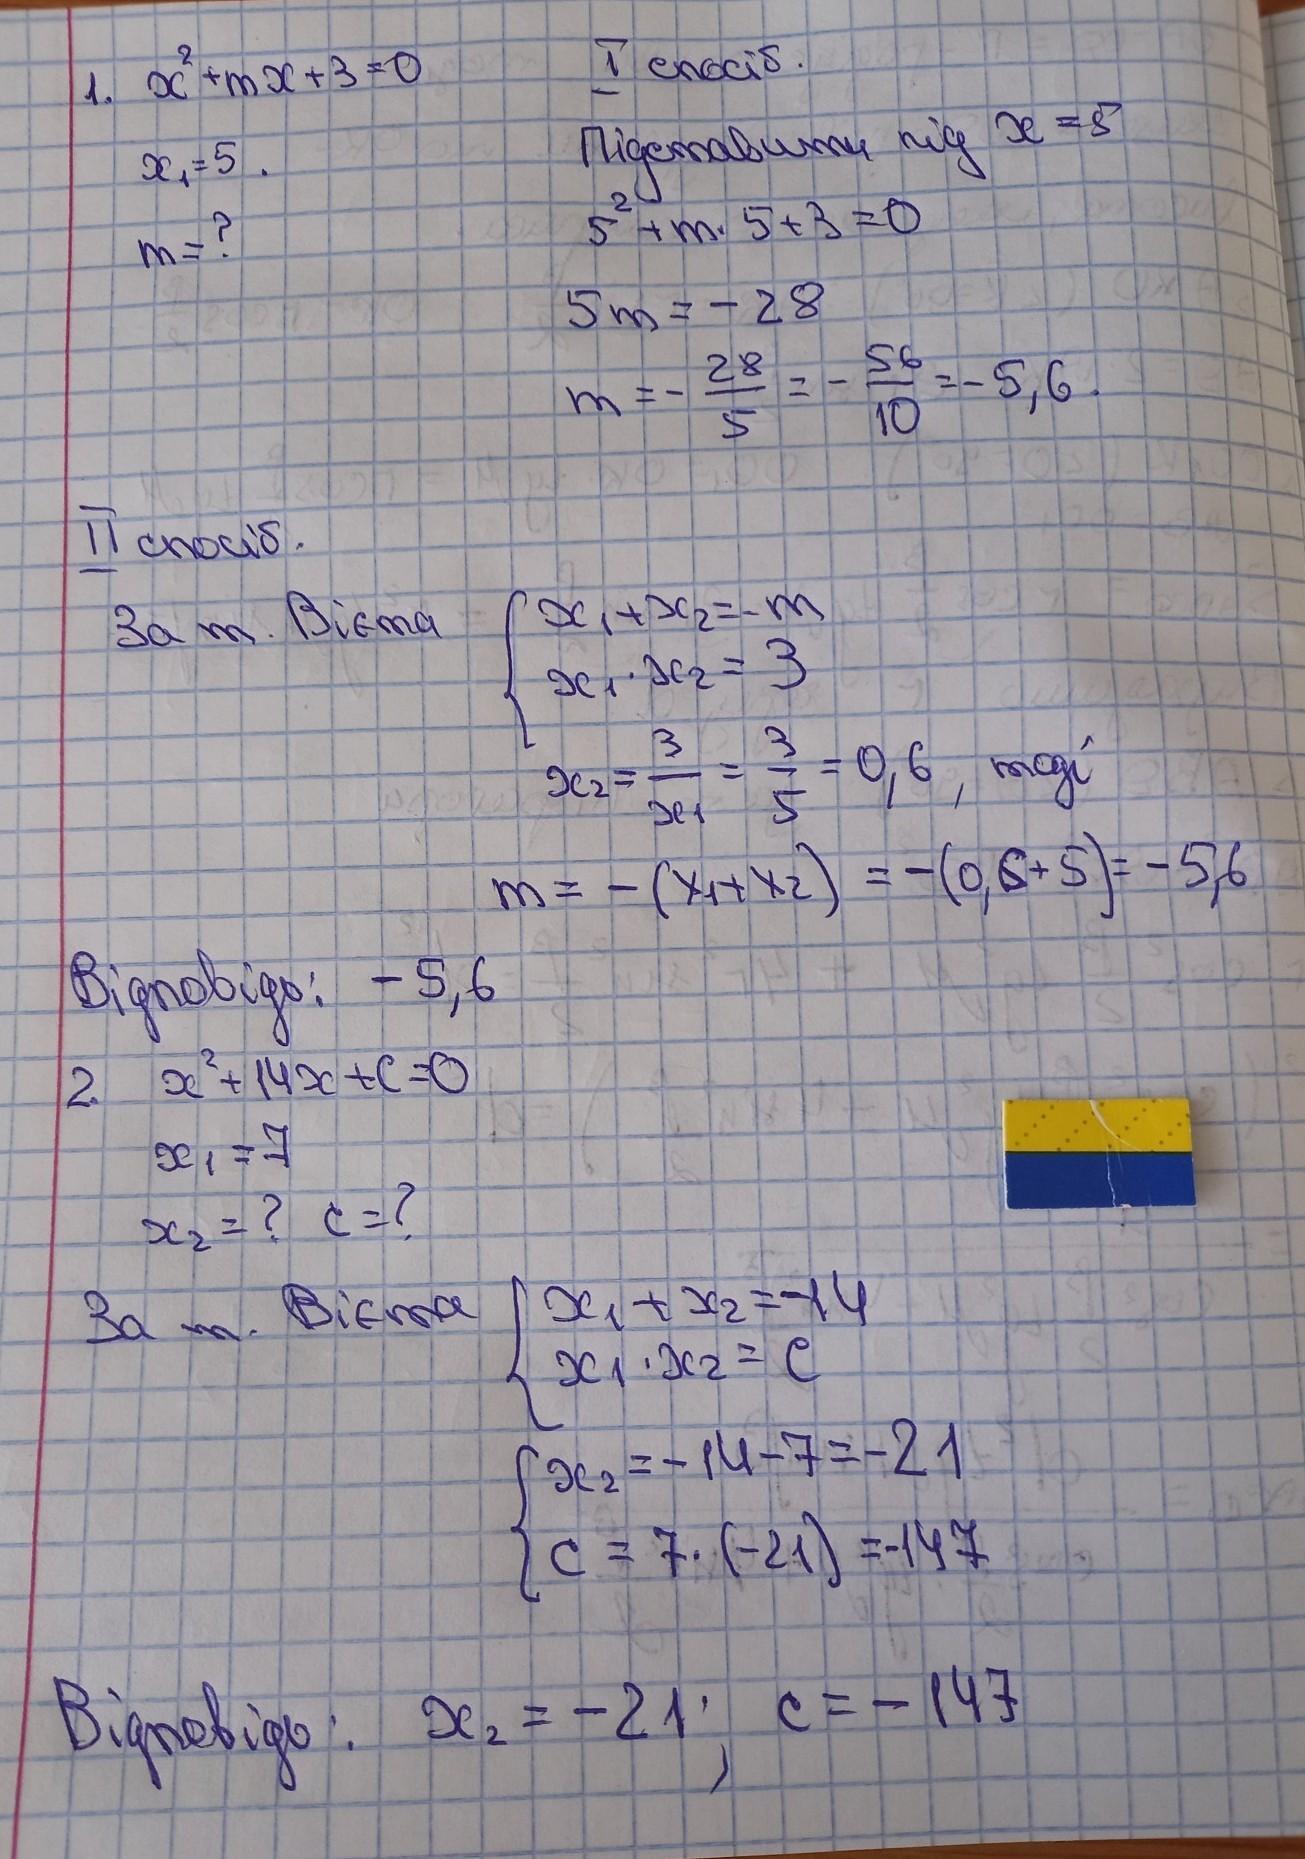 1. x²+mx+3=0
x₁=5.
m=?
I спосіб.
Підставити під x=5
5²+m·5+3=0
5m=-28
m=-28/5=-56/10=-5,6.
II спосіб.
За т. Вієта { x₁+x₂=-m
x₁·x₂=3
x₂=3/x₁=3/5=0,6, тоді
m=-(x₁+x₂)=-(0,6+5)=-5,6
Відповідь: -5,6
2. x²+14x+c=0
x₁=7
x₂=? c=?
За т. Вієта { x₁+x₂=-14
x₁·x₂=c
{ x₂=-14-7=-21
c=7·(-21)=-147
Відповідь: x₂=-21; c=-147